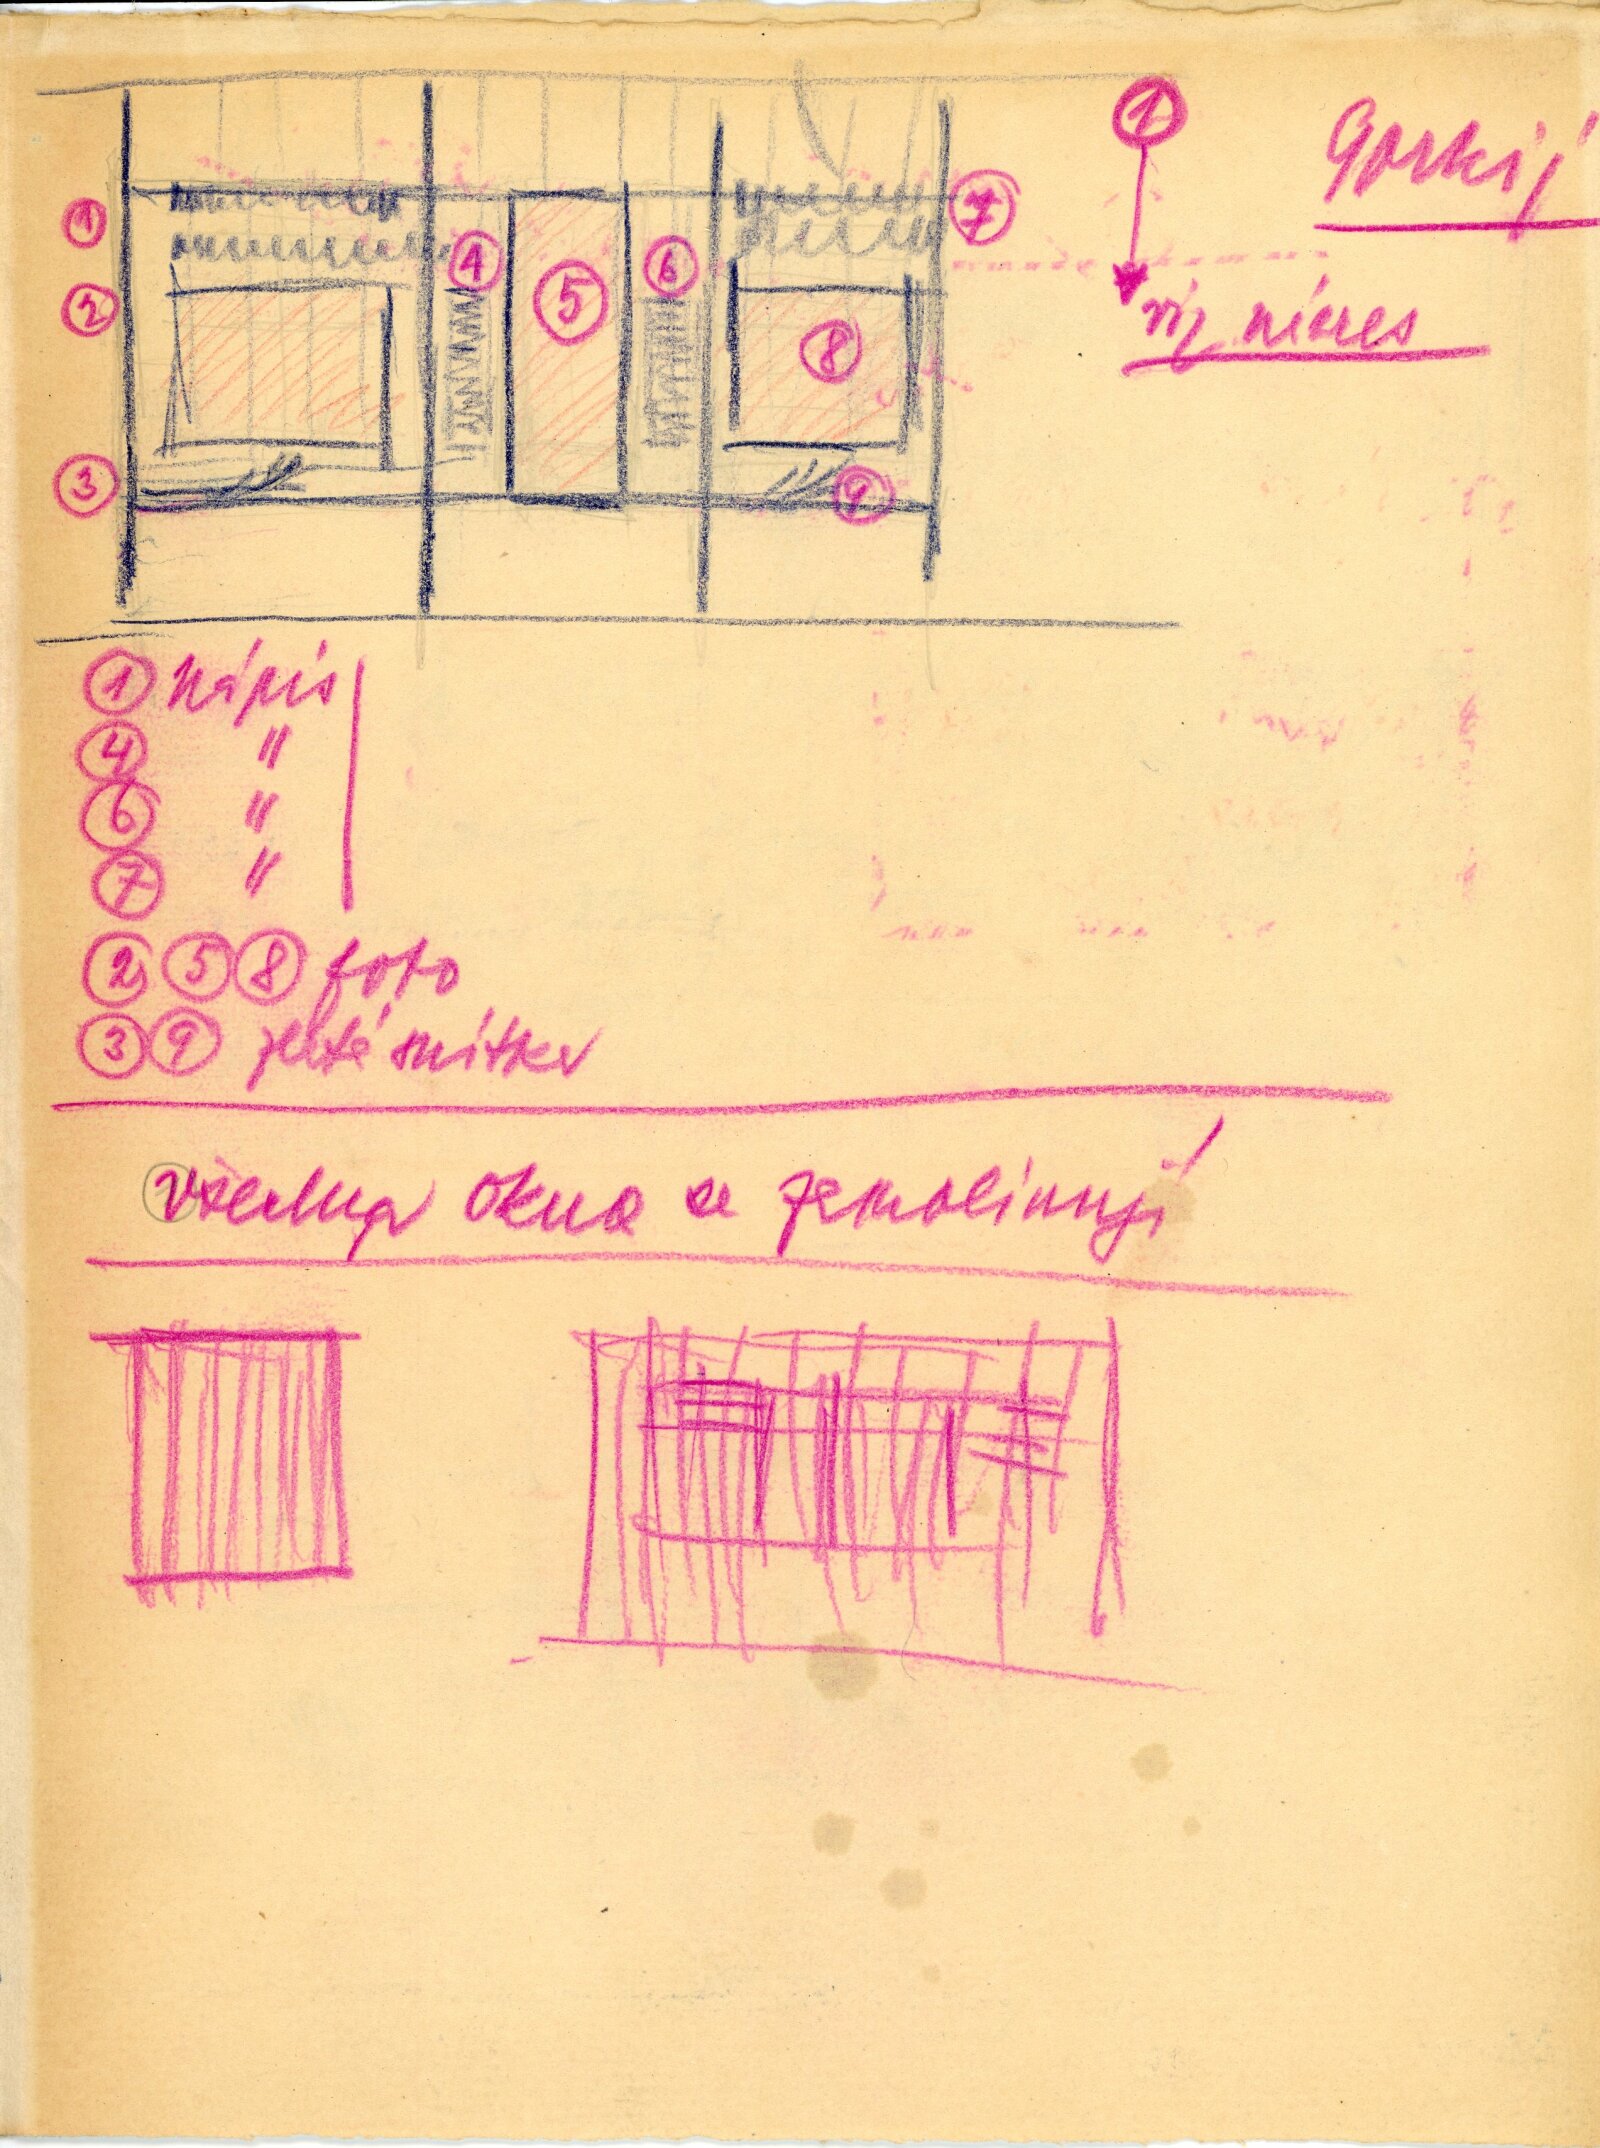 ① Gorkij
viz náčres
① ④ ⑥ ⑦
② ⑤ ⑧
③ ⑨
① nápis
④ "
⑥ "
⑦ "
② ⑤ ⑧ foto
③ ⑨ žluté snítky
všechna okna se